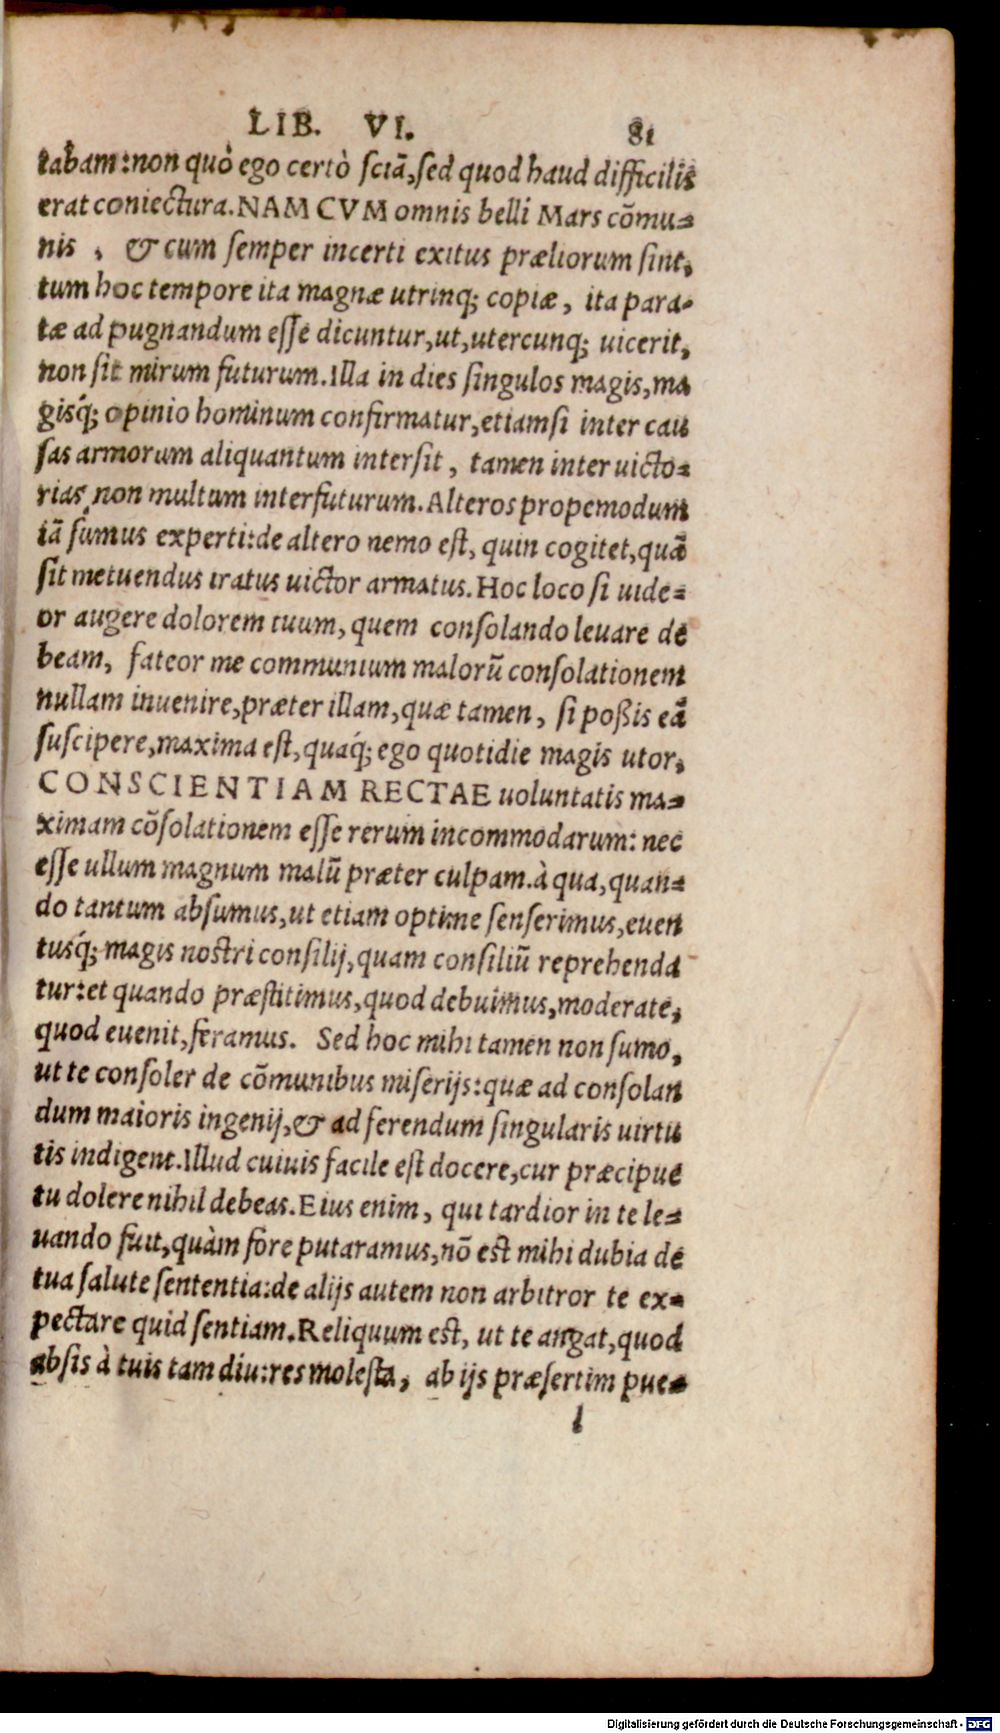 LIB. VI. 81
tabam: non quò ego certò sciã, sed quod haud difficilis
erat coniectura. NAM CVM omnis belli Mars cõmu=
nis, & cum semper incerti exitus præliorum sint,
tum hoc tempore ita magnæ utrinq; copiæ, ita para=
tæ ad pugnandum esse dicuntur, ut, utercunq; uicerit,
non sit mirum futurum. Illa in dies singulos magis, ma
gisq́; opinio hominum confirmatur, etiamsi inter cau
sas armorum aliquantum intersit, tamen inter uicto=
rias non multum interfuturum. Alteros propemodum
iã sumus experti: de altero nemo est, quin cogitet, quã
sit metuendus iratus uictor armatus. Hoc loco si uide=
or augere dolorem tuum, quem consolando leuare de
beam, fateor me communium malorũ consolationem
nullam inuenire, præter illam, quæ tamen, si poßis eã
suscipere, maxima est, quaq́; ego quotidie magis utor,
CONSCIENTIAM RECTAE uoluntatis ma=
ximam cõsolationem esse rerum incommodarum: nec
esse ullum magnum malũ præter culpam. à qua, quan=
do tantum absumus, ut etiam optime senserimus, euen
tusq́; magis nostri consilij, quam consiliũ reprehenda
tur: et quando præstitimus, quod debuimus, moderate,
quod euenit, feramus. Sed hoc mihi tamen non sumo,
ut te consoler de cõmunibus miserijs: quæ ad consolan
dum maioris ingenij, & ad ferendum singularis uirtu
tis indigent. Illud cuiuis facile est docere, cur præcipue
tu dolere nihil debeas. Eius enim, qui tardior in te le=
uando fuit, quàm fore putaramus, nõ est mihi dubia de
tua salute sententia: de alijs autem non arbitror te ex=
pectare quid sentiam. Reliquum est, ut te angat, quod
absis à tuis tam diu: res molesta, ab ijs præsertim pue=
l
Digitalisierung gefördert durch die Deutsche Forschungsgemeinschaft - DFG